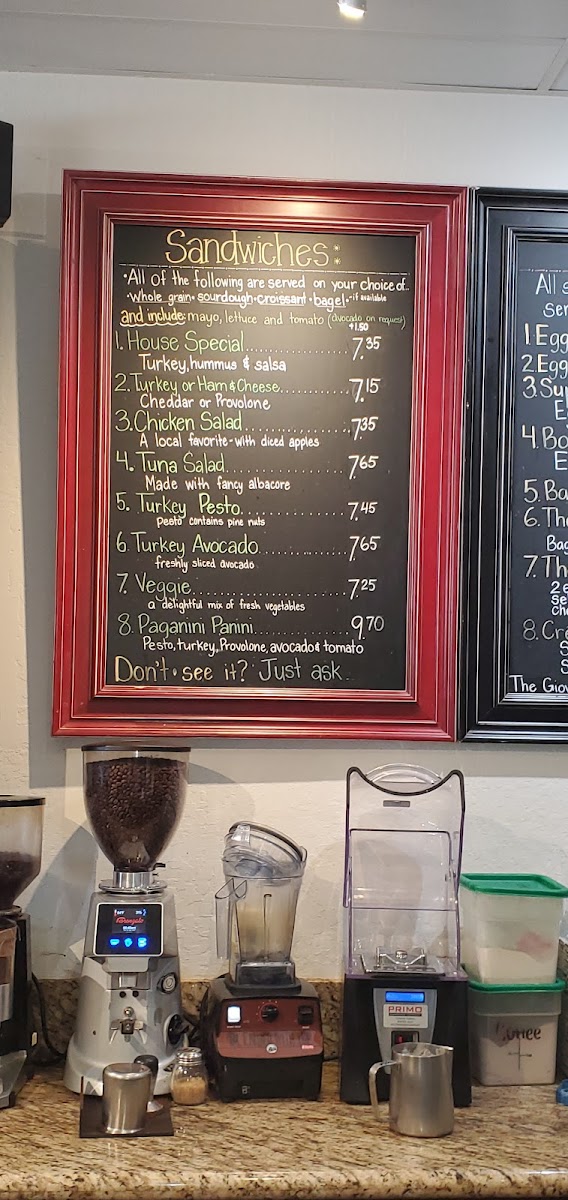 Sandwiches:
•All of the following are served on your choice of..
•Whole grain•sourdough•croissant•bagel•-if available
and include: mayo, lettuce and tomato (avocado on request)
+1.50
1. House Special.................. 7.35
Turkey, hummus & salsa
2. Turkey or Ham & Cheese............ 7.15
Cheddar or Provolone
3. Chicken Salad................ 7.35
A local favorite-with diced apples
4. Tuna Salad................... 7.65
Made with fancy albacore
5. Turkey Pesto................ 7.45
Pesto contains pine nuts
6. Turkey Avocado.............. 7.65
freshly sliced avocado
7. Veggie....................... 7.25
a delightful mix of fresh vegetables
8. Paganini Panini............... 9.70
Pesto, turkey, Provolone, avocado & tomato
Don't•see it? Just ask...
All
1. Egg
2. Egg
3.
4.
5.
6.
7.
8.
The
PRIMO
Coffee